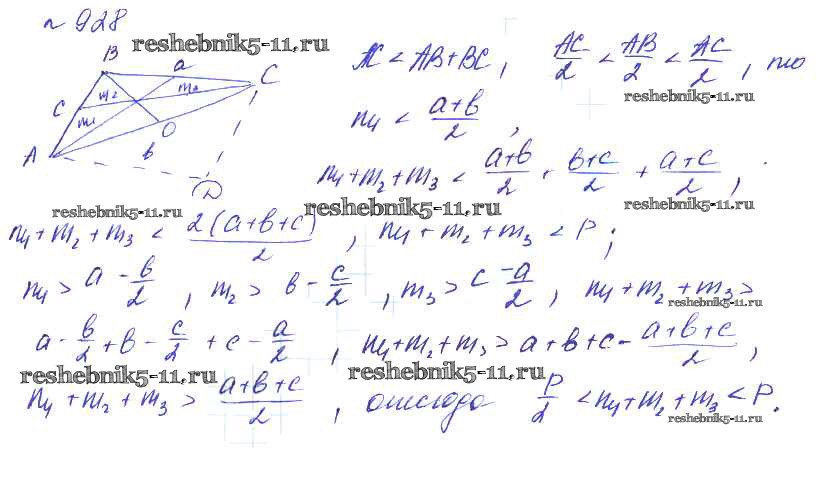 № 928
reshebnik5-11.ru
B a C
c m₂ m₃
m₁ O
A b D
AC < AB + BC, AC/2 < AB/2 < AC/2, то
reshebnik5-11.ru
m₁ < (a+b)/2,
m₁ + m₂ + m₃ < (a+b)/2 + (b+c)/2 + (a+c)/2,
reshebnik5-11.ru reshebnik5-11.ru reshebnik5-11.ru
m₁ + m₂ + m₃ < 2(a+b+c)/2, m₁ + m₂ + m₃ < P;
m₁ > a - b/2, m₂ > b - c/2, m₃ > c - a/2, m₁ + m₂ + m₃ >
reshebnik5-11.ru
a - b/2 + b - c/2 + c - a/2, m₁ + m₂ + m₃ > a + b + c - (a+b+c)/2,
reshebnik5-11.ru reshebnik5-11.ru
m₁ + m₂ + m₃ > (a+b+c)/2, отсюда P/2 < m₁ + m₂ + m₃ < P.
reshebnik5-11.ru